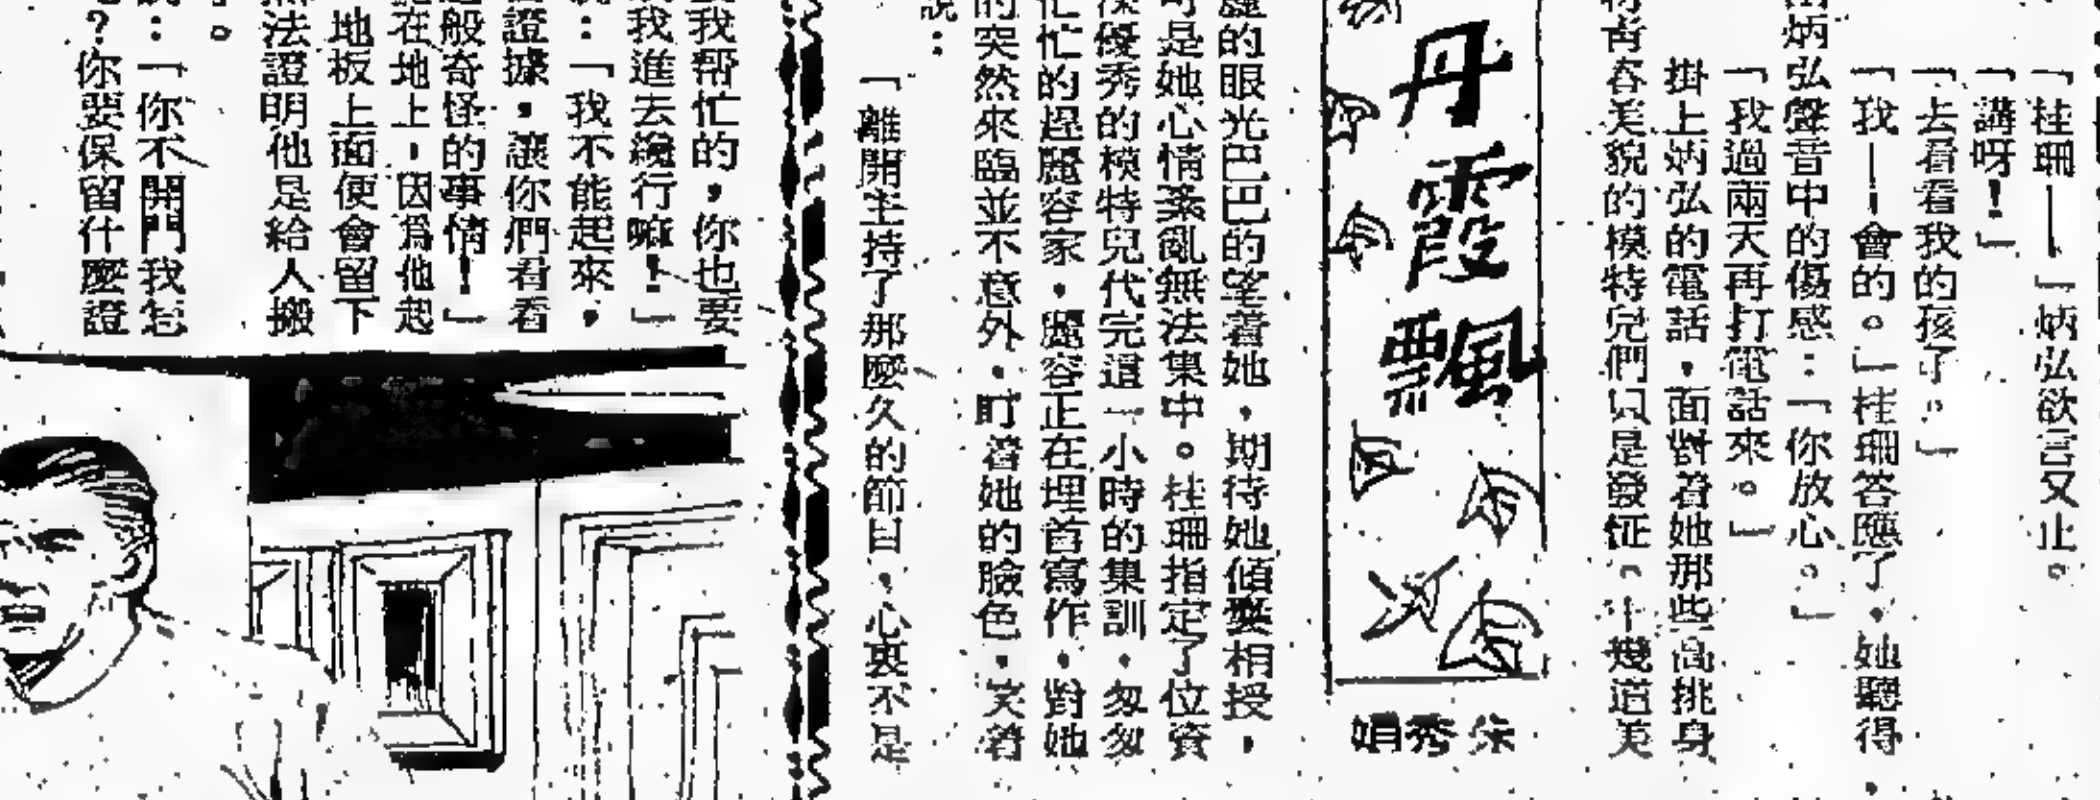 「桂珊——」炳弘欲言又止。
「講呀!」
「去看看我的孩子。」
「我——會的。」桂珊答應了,她聽得
炳弘聲音中的傷感:「你放心。」
「我過兩天再打電話來。」
掛上炳弘的電話,面對着她那些高挑身
青春美貌的模特兒們只是發怔。十幾道美
丹霞飄
朱秀娟
的眼光巴巴的望着她,期待她傾囊相授,
可是她心情紊亂無法集中。桂珊指定了位資
深優秀的模特兒代完這一小時的集訓,匆匆
忙忙的趕麗容家,麗容正在埋首寫作,對她
的突然來臨並不意外,盯着她的臉色,笑着
說:
「離開主持了那麼久的節目,心裏不是
我帮忙的,你也要
我進去纔行嘛!」
:「我不能起來,
證據,讓你們看看
般奇怪的事情!」
在地上,因爲他起
地板上面便會留下
法證明他是給人搬
。
:「你不開門我怎
?你要保留什麼證